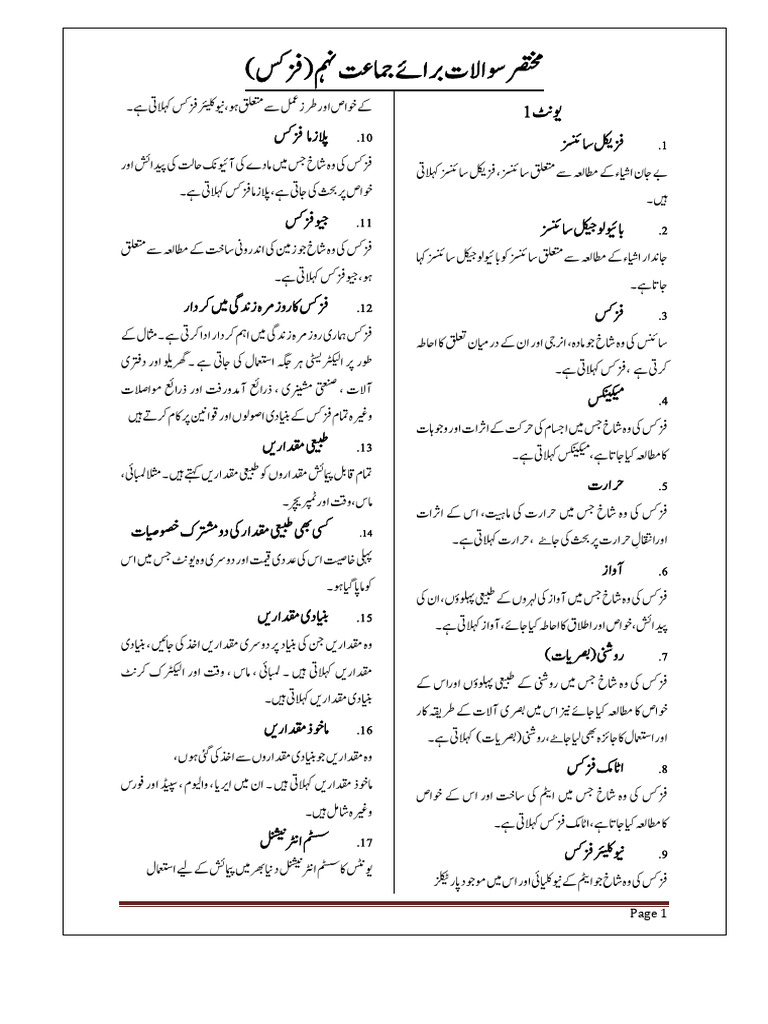 مختصر سوالات برائے جماعت نہم (فزکس)
یونٹ 1
1. فزیکل سائنسز
بے جان اشیاء کے مطالعہ سے متعلق سائنسز، فزیکل سائنسز کہلاتی
ہیں۔
2. بائیولوجیکل سائنسز
جاندار اشیاء کے مطالعہ سے متعلق سائنسز کو بائیولوجیکل سائنسز کہا
جاتا ہے۔
3. فزکس
سائنس کی وہ شاخ جو مادہ، انرجی اور ان کے درمیان تعلق کا احاطہ
کرتی ہے ، فزکس کہلاتی ہے۔
4. میکینکس
فزکس کی وہ شاخ جس میں اجسام کی حرکت کے اثرات اور وجوہات
کا مطالعہ کیا جاتا ہے، میکینکس کہلاتی ہے۔
5. حرارت
فزکس کی وہ شاخ جس میں حرارت کی ماہیت، اس کے اثرات
اور انتقالِ حرارت پر بحث کی جائے ، حرارت کہلاتی ہے۔
6. آواز
فزکس کی وہ شاخ جس میں آواز کی لہروں کے طبیعی پہلوؤں، ان کی
پیدائش، خواص اور اطلاق کا احاطہ کیا جائے، آواز کہلاتی ہے۔
7. روشنی (بصریات)
فزکس کی وہ شاخ جس میں روشنی کے طبیعی پہلوؤں اور اس کے
خواص کا مطالعہ کیا جائے نیز اس میں بصری آلات کے طریقہ کار
اور استعمال کا جائزہ بھی لیا جائے، روشنی (بصریات) کہلاتی ہے۔
8. اٹامک فزکس
فزکس کی وہ شاخ جس میں ایٹم کی ساخت اور اس کے خواص
کا مطالعہ کیا جاتا ہے، اٹامک فزکس کہلاتی ہے۔
9. نیوکلیئر فزکس
فزکس کی وہ شاخ جو ایٹم کے نیوکلیائی اور اس میں موجود پارٹیکلز
کے خواص اور طرز عمل سے متعلق ہو، نیوکلیئر فزکس کہلاتی ہے۔
10. پلازما فزکس
فزکس کی وہ شاخ جس میں مادے کی آئیونک حالت کی پیدائش اور
خواص پر بحث کی جاتی ہے، پلازما فزکس کہلاتی ہے۔
11. جیو فزکس
فزکس کی وہ شاخ جو زمین کی اندرونی ساخت کے مطالعہ سے متعلق
ہو، جیو فزکس کہلاتی ہے۔
12. فزکس کا روز مرہ زندگی میں کردار
فزکس ہماری روز مرہ زندگی میں اہم کردار ادا کرتی ہے۔ مثال کے
طور پر الیکٹریسٹی ہر جگہ استعمال کی جاتی ہے ۔ گھریلو اور دفتری
آلات ، صنعتی مشینری ، ذرائع آمدورفت اور ذرائع مواصلات
وغیرہ تمام فزکس کے بنیادی اصولوں اور قوانین پر کام کرتے ہیں
13. طبیعی مقداریں
تمام قابل پیمائش مقداروں کو طبیعی مقداریں کہتے ہیں۔ مثلا لمبائی،
ماس، وقت اور ٹمپریچر۔
14. کسی بھی طبیعی مقدار کی دو مشترک خصوصیات
پہلی خاصیت اس کی عددی قیمت اور دوسری وہ یونٹ جس میں اس
کو ماپا گیا ہو۔
15. بنیادی مقداریں
وہ مقداریں جن کی بنیاد پر دوسری مقداریں اخذ کی جائیں، بنیادی
مقداریں کہلاتی ہیں ۔ لمبائی ، ماس ، وقت اور الیکٹرک کرنٹ
بنیادی مقداریں کہلاتی ہیں۔
16. ماخوذ مقداریں
وہ مقداریں جو بنیادی مقداروں سے اخذ کی گئی ہوں،
ماخوذ مقداریں کہلاتی ہیں ۔ ان میں ایریا، والیوم ، سپیڈ اور فورس
وغیرہ شامل ہیں۔
17. سسٹم انٹرنیشنل
یونٹس کا سسٹم انٹرنیشنل دنیا بھر میں پیمائش کے لیے استعمال
Page 1